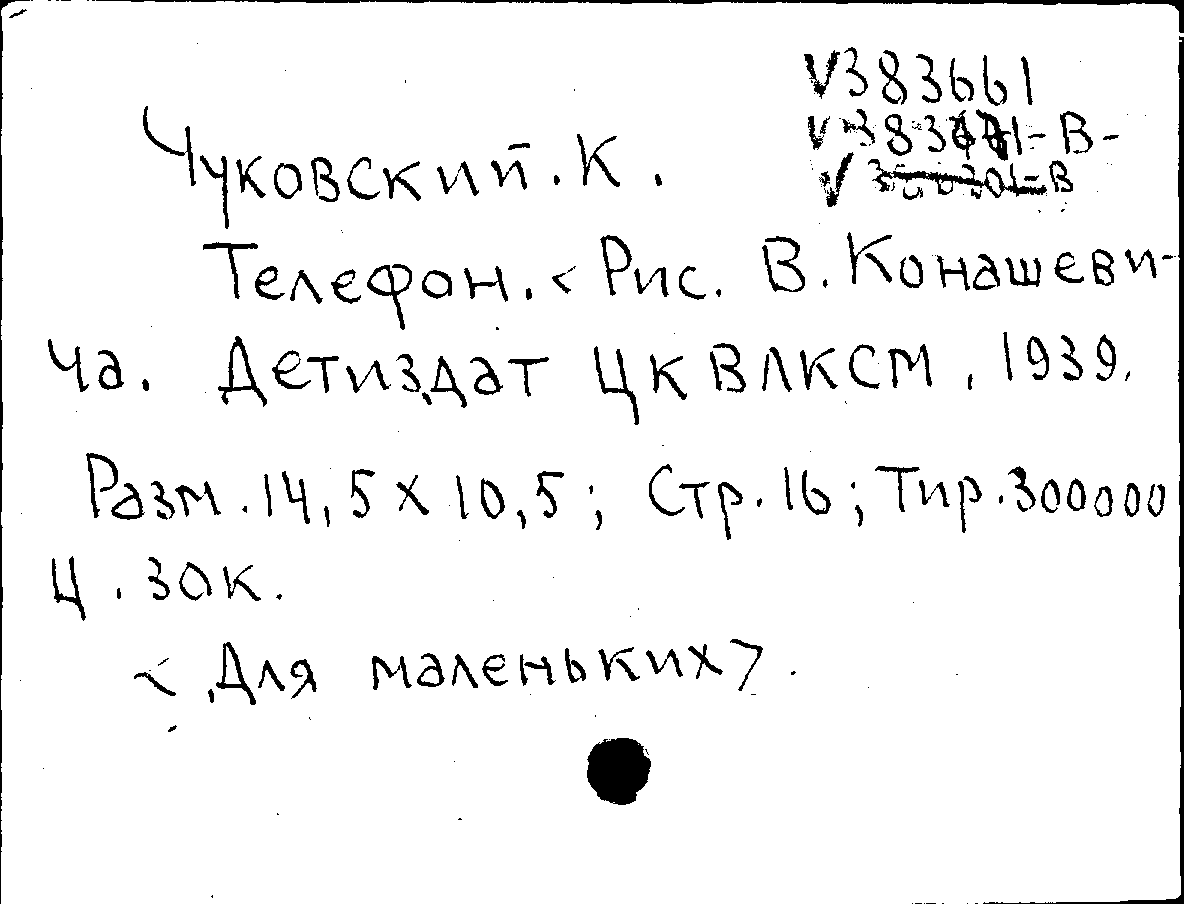 V383661
V383661-В-
Чуковский.К.
Телефон.<Рис. В. Конашеви-
ча. Детиздат ЦК ВЛКСМ, 1939.
Разм.14,5х10,5; Стр.16; Тир.300000
Ц.30к.
<Для маленьких>.